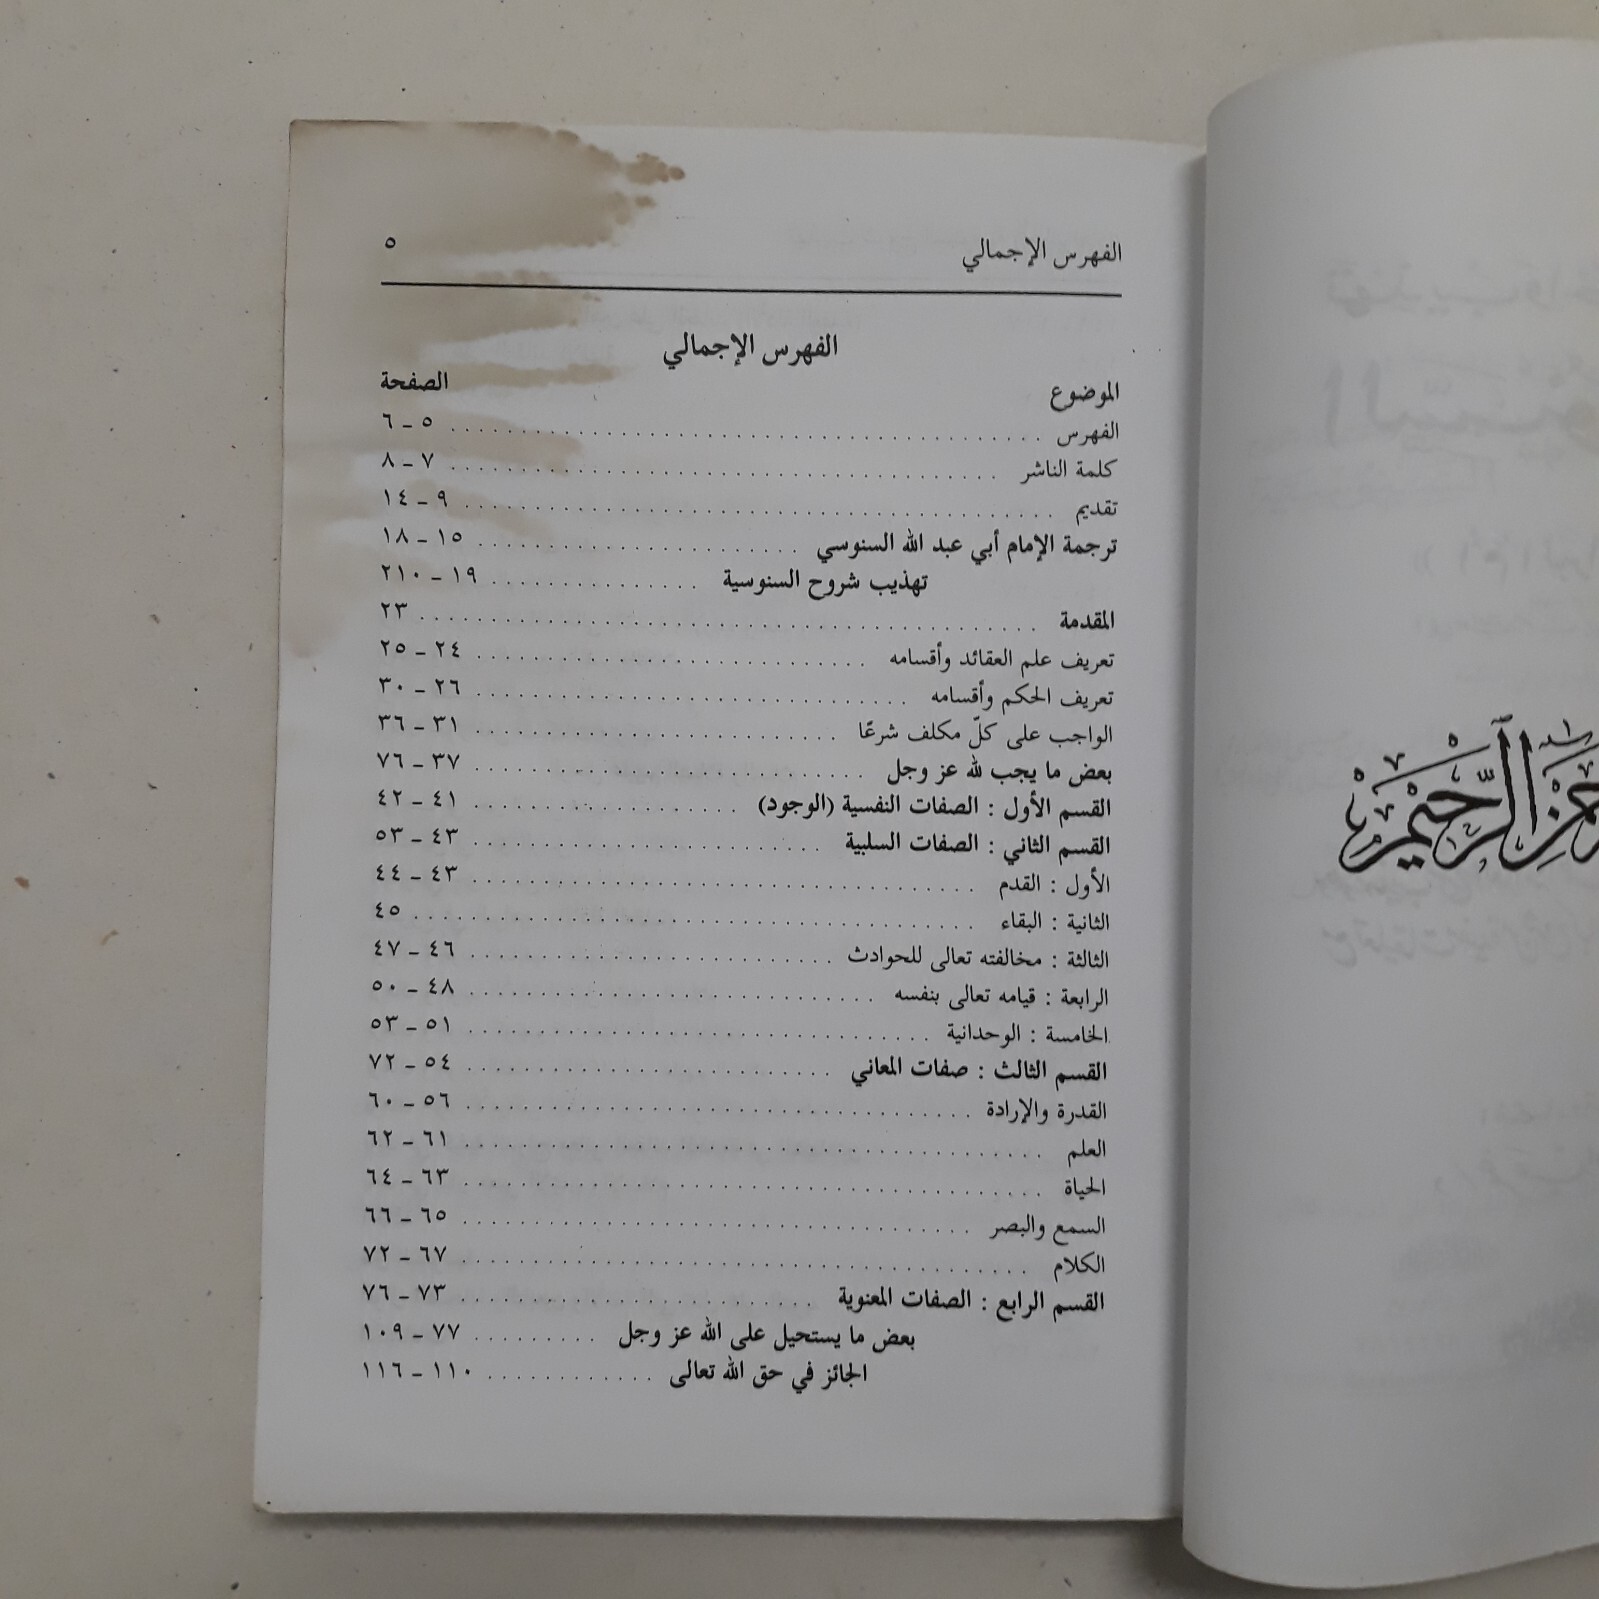 الفهرس الإجمالي ٥
الفهرس الإجمالي
الموضوع الصفحة
الفهرس ٥ - ٦
كلمة الناشر ٧ - ٨
تقديم ٩ - ١٤
ترجمة الإمام أبي عبد الله السنوسي ١٥ - ١٨
تهذيب شروح السنوسية ١٩ - ٢١٠
المقدمة ٢٣
تعريف علم العقائد وأقسامه ٢٤ - ٢٥
تعريف الحكم وأقسامه ٢٦ - ٣٠
الواجب على كلّ مكلف شرعًا ٣١ - ٣٦
بعض ما يجب لله عز وجل ٣٧ - ٧٦
القسم الأول : الصفات النفسية (الوجود) ٤١ - ٤٢
القسم الثاني : الصفات السلبية ٤٣ - ٥٣
الأول : القدم ٤٣ - ٤٤
الثانية : البقاء ٤٥
الثالثة : مخالفته تعالى للحوادث ٤٦ - ٤٧
الرابعة : قيامه تعالى بنفسه ٤٨ - ٥٠
الخامسة : الوحدانية ٥١ - ٥٣
القسم الثالث : صفات المعاني ٥٤ - ٧٢
القدرة والإرادة ٥٦ - ٦٠
العلم ٦١ - ٦٢
الحياة ٦٣ - ٦٤
السمع والبصر ٦٥ - ٦٦
الكلام ٦٧ - ٧٢
القسم الرابع : الصفات المعنوية ٧٣ - ٧٦
بعض ما يستحيل على الله عز وجل ٧٧ - ١٠٩
الجائز في حق الله تعالى ١١٠ - ١١٦
الرَّحِيْمِ